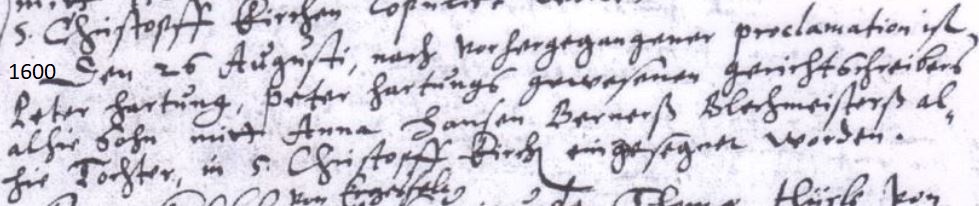 S. Christopff Kirchen copulirt
1600 Den 26 Augusti, nach vorhergegangener proclamation ist
Peter Hartung, Peter Hartungs gewesenen gerichtschreibers
alhie Sohn mitt Anna Hansen Berners Blechmeisterß al-
hie Tochter, in S. Christopff Kirch eingesegnet worden.
von